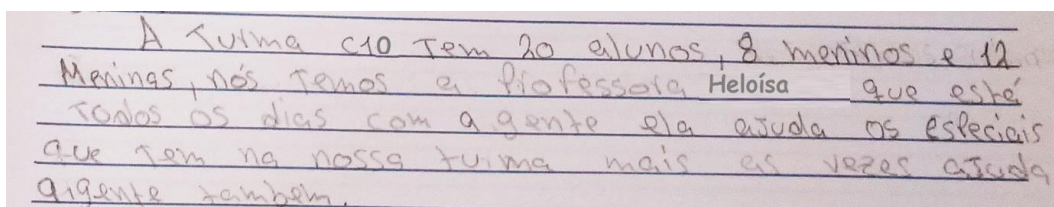 A Turma C10 Tem 20 alunos, 8 meninos e 12
Meninas, nós Temos a Professora Heloísa que está
Todos os dias com a gente ela ajuda os especiais
que Tem na nossa turma mais as vezes ajuda
agente também.